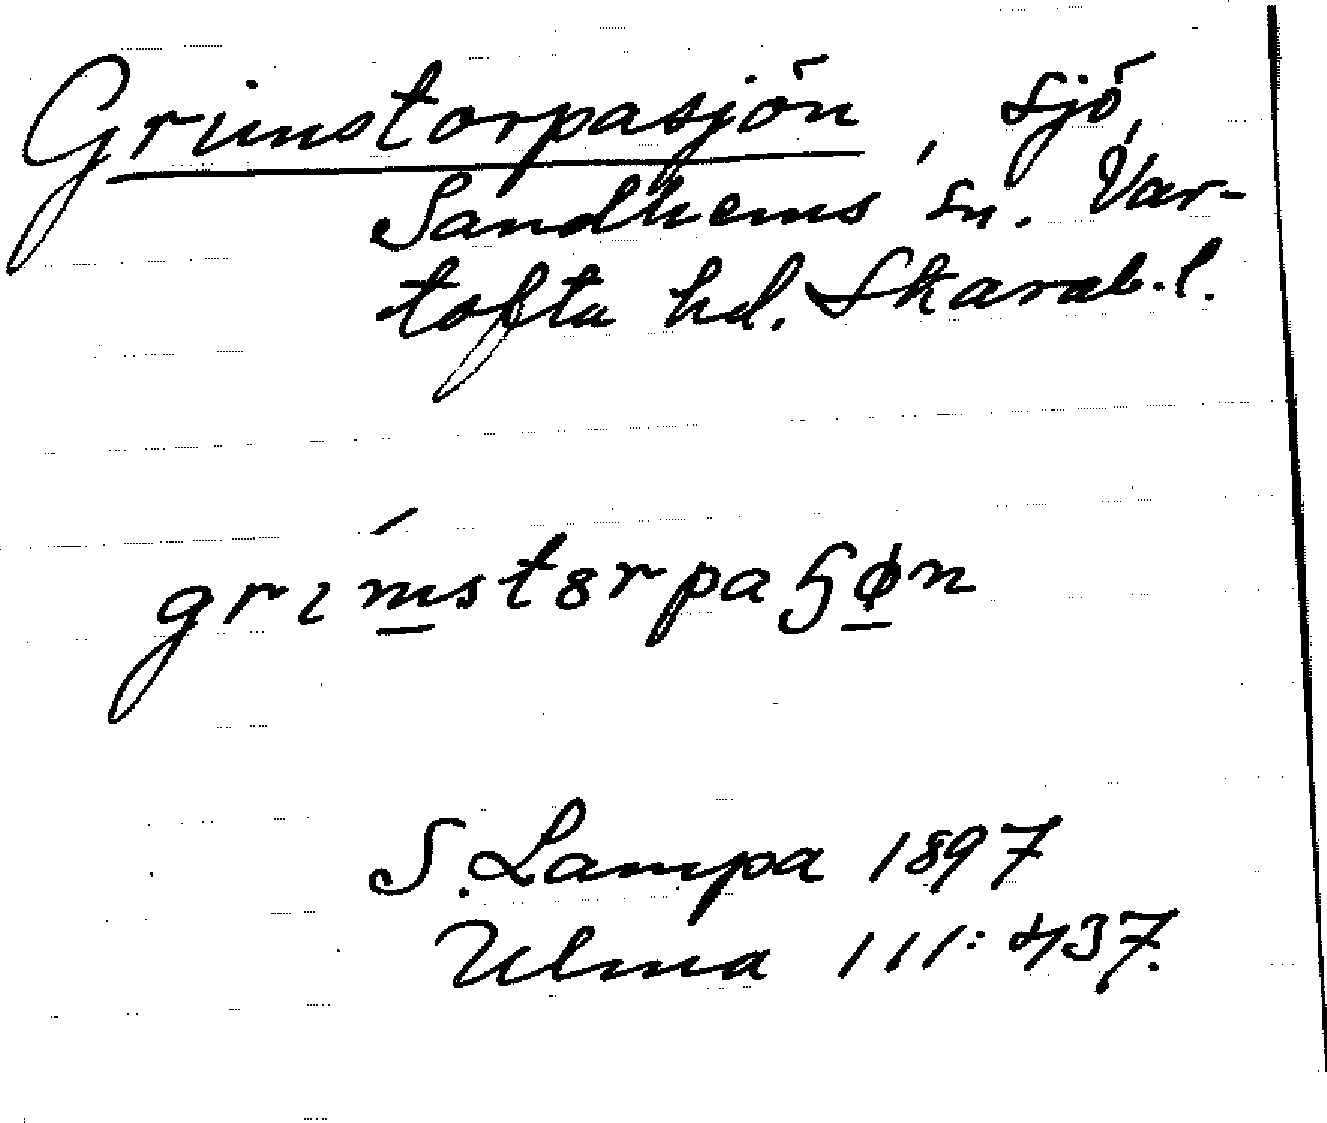 Grimstorpasjön, sjö,
Sandhems sn. Var-
tofta hd. Skarab. l.
grım̲stɵrpaɧø̲n
S. Lampa 1897
Ulma 111:437.